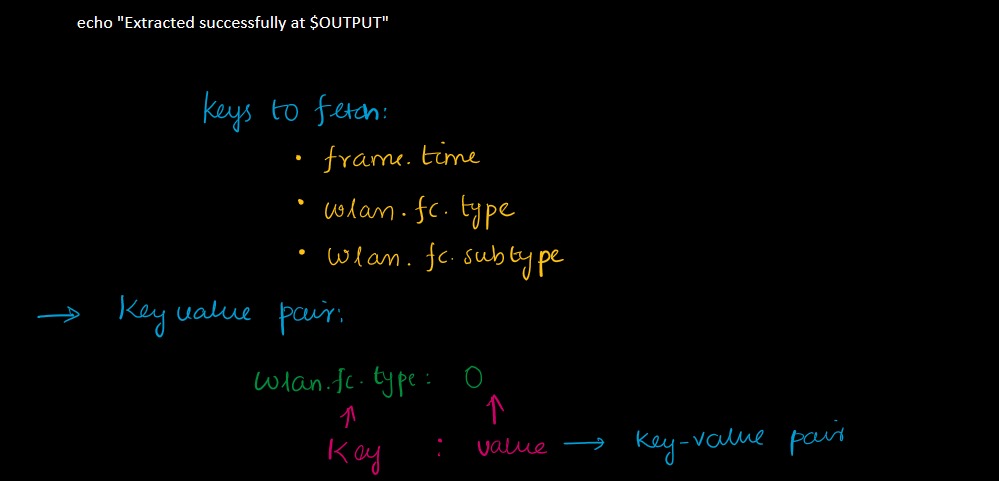 echo "Extracted successfully at $OUTPUT"
Keys to fetch:
• frame.time
• wlan.fc.type
• wlan.fc.subtype
→ Key value pair:
wlan.fc.type: 0
↑ ↑
Key : value → key-value pair